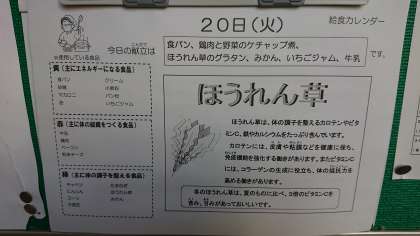 20日(火)
給食カレンダー
こんだて
今日の献立は
食パン、鶏肉と野菜のケチャップ煮、
ほうれん草のグラタン、みかん、いちごジャム、牛乳
です。
※使用している食品
黄(主にエネルギーになる食品)
食パン クリーム
砂糖 小麦粉
マカロニ パン粉
油 いちごジャム
赤(主に体の組織をつくる食品)
牛乳
鶏肉
ベーコン
粉チーズ
緑(主に体の調子を整える食品)
キャベツ たまねぎ
にんじん ほうれん草
コーン みかん
ほうれん草
ほうれん草は、体の調子を整えるカロテンやビタ
ミンC、鉄やカルシウムをたっぷり含んでいます。
カロテンには、皮膚や粘膜などを健康に保ち、
免疫機能を強化する働きがあります。またビタミンC
には、コラーゲンの生成に役立ち、体の抵抗力を
高める働きがあります。
冬のほうれん草は、夏のものに比べ、3倍のビタミンCを
含み、甘みがあっておいしいです。